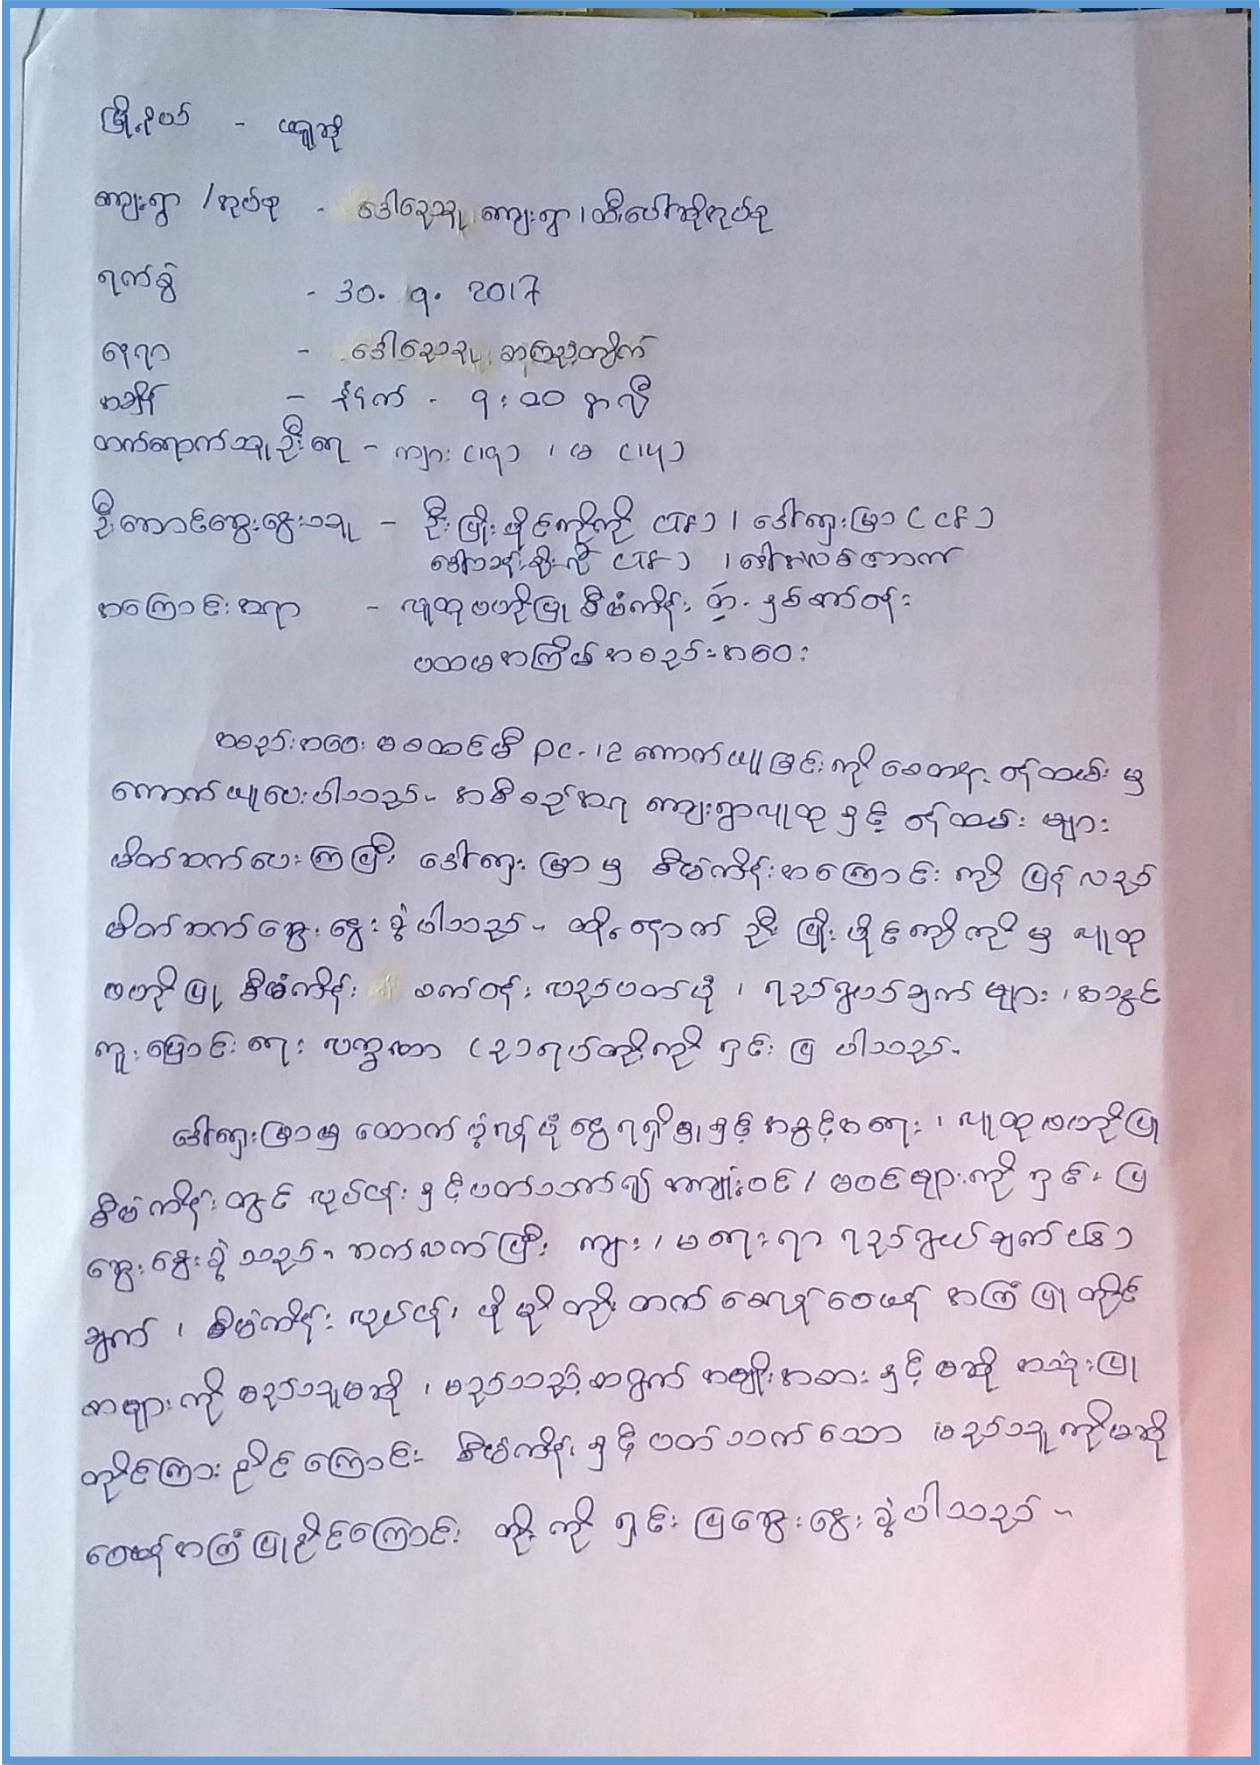 မြို့နယ် - ဖရူဆို
ကျေးရွာ /အုပ်စု - ဒေါသေသူ ကျေးရွာ ၊ ထီးပေါ်ဆိုအုပ်စု
ရက်စွဲ - 30. ၅. 2017
နေရာ - ဒေါသေသူ
အချိန် - နံနက် - ၇ : ၃၀ နာရီ
တက်ရောက်သူဦးရေ - ကျား (၁၇) ၊ မ (၁၅)
ဦးဆောင်ဆွေးနွေးသူ - ဦးမြိုးမိုင်ကိုကို (TF) ၊ ဒေါ်ရှားမြာ (CF)
(TF) ၊
အကြောင်းအရာ - လူထုဗဟိုပြု စီမံကိန်း
ပထမအကြိမ်အစည်းအဝေး
အစည်းအဝေး မစတင်မီ PC-12 ကောက်ယူခြင်းကို စေတနာ့ ဝန်ထမ်း မှ
ကောက်ယူပေးပါသည်။ အစီစဉ်အရ ကျေးရွာလူထု နှင့် ဝန်ထမ်း များ
မိတ်ဆက်ပေးကြပြီး ဒေါ်ရှားမြာ မှ စီမံကိန်းအကြောင်း ကို ပြန်လည်
မိတ်ဆက် ဆွေးနွေးခဲ့ပါသည်။ ထို့နောက် ဦးမြိုးမိုင်ကိုကို မှ လူထု
ဗဟိုပြု စီမံကိန်း စက်ဝန်း လည်ပတ်ပုံ ၊ ရည်ရွယ်ချက်များ ၊ အသွင်
ကူးပြောင်းရေး လက္ခဏာ (၃)ရပ်တို့ကို ရှင်းပြ ပါသည်။
ဒေါ်ရှားမြာမှ ထောက်ပံ့ရန်ပုံငွေ ရရှိမှုနှင့် အခွင့်အရေး ၊ လူထုဗဟိုပြု
စီမံကိန်း တွင် လုပ်ငန်း နှင့်ပတ်သက်၍ အကျုံးဝင် / မဝင်များကို ရှင်းပြ
ဆွေးနွေးခဲ့သည်။ ဆက်လက်ပြီး ကျား / မ ရေးရာ ရည်ရွယ်ချက် (၆)
ချက် ၊ စီမံကိန်း လုပ်ငန်း ပိုမိုတိုးတက်စေရန် ဝေဖန် အကြံပြုတိုင်
စာများကို မည်သူမဆို ၊ မည်သည့်အတွက် အမျိုးအစား နှင့် မဆို အသုံးပြု
တိုင်ကြားနိုင်ကြောင်း စီမံကိန်း နှင့် ပတ်သက်သော မည်သူကိုမဆို
ဝေဖန်အကြံပြုနိုင်ကြောင်း တို့ ကို ရှင်းပြဆွေးနွေးခဲ့ပါသည်။